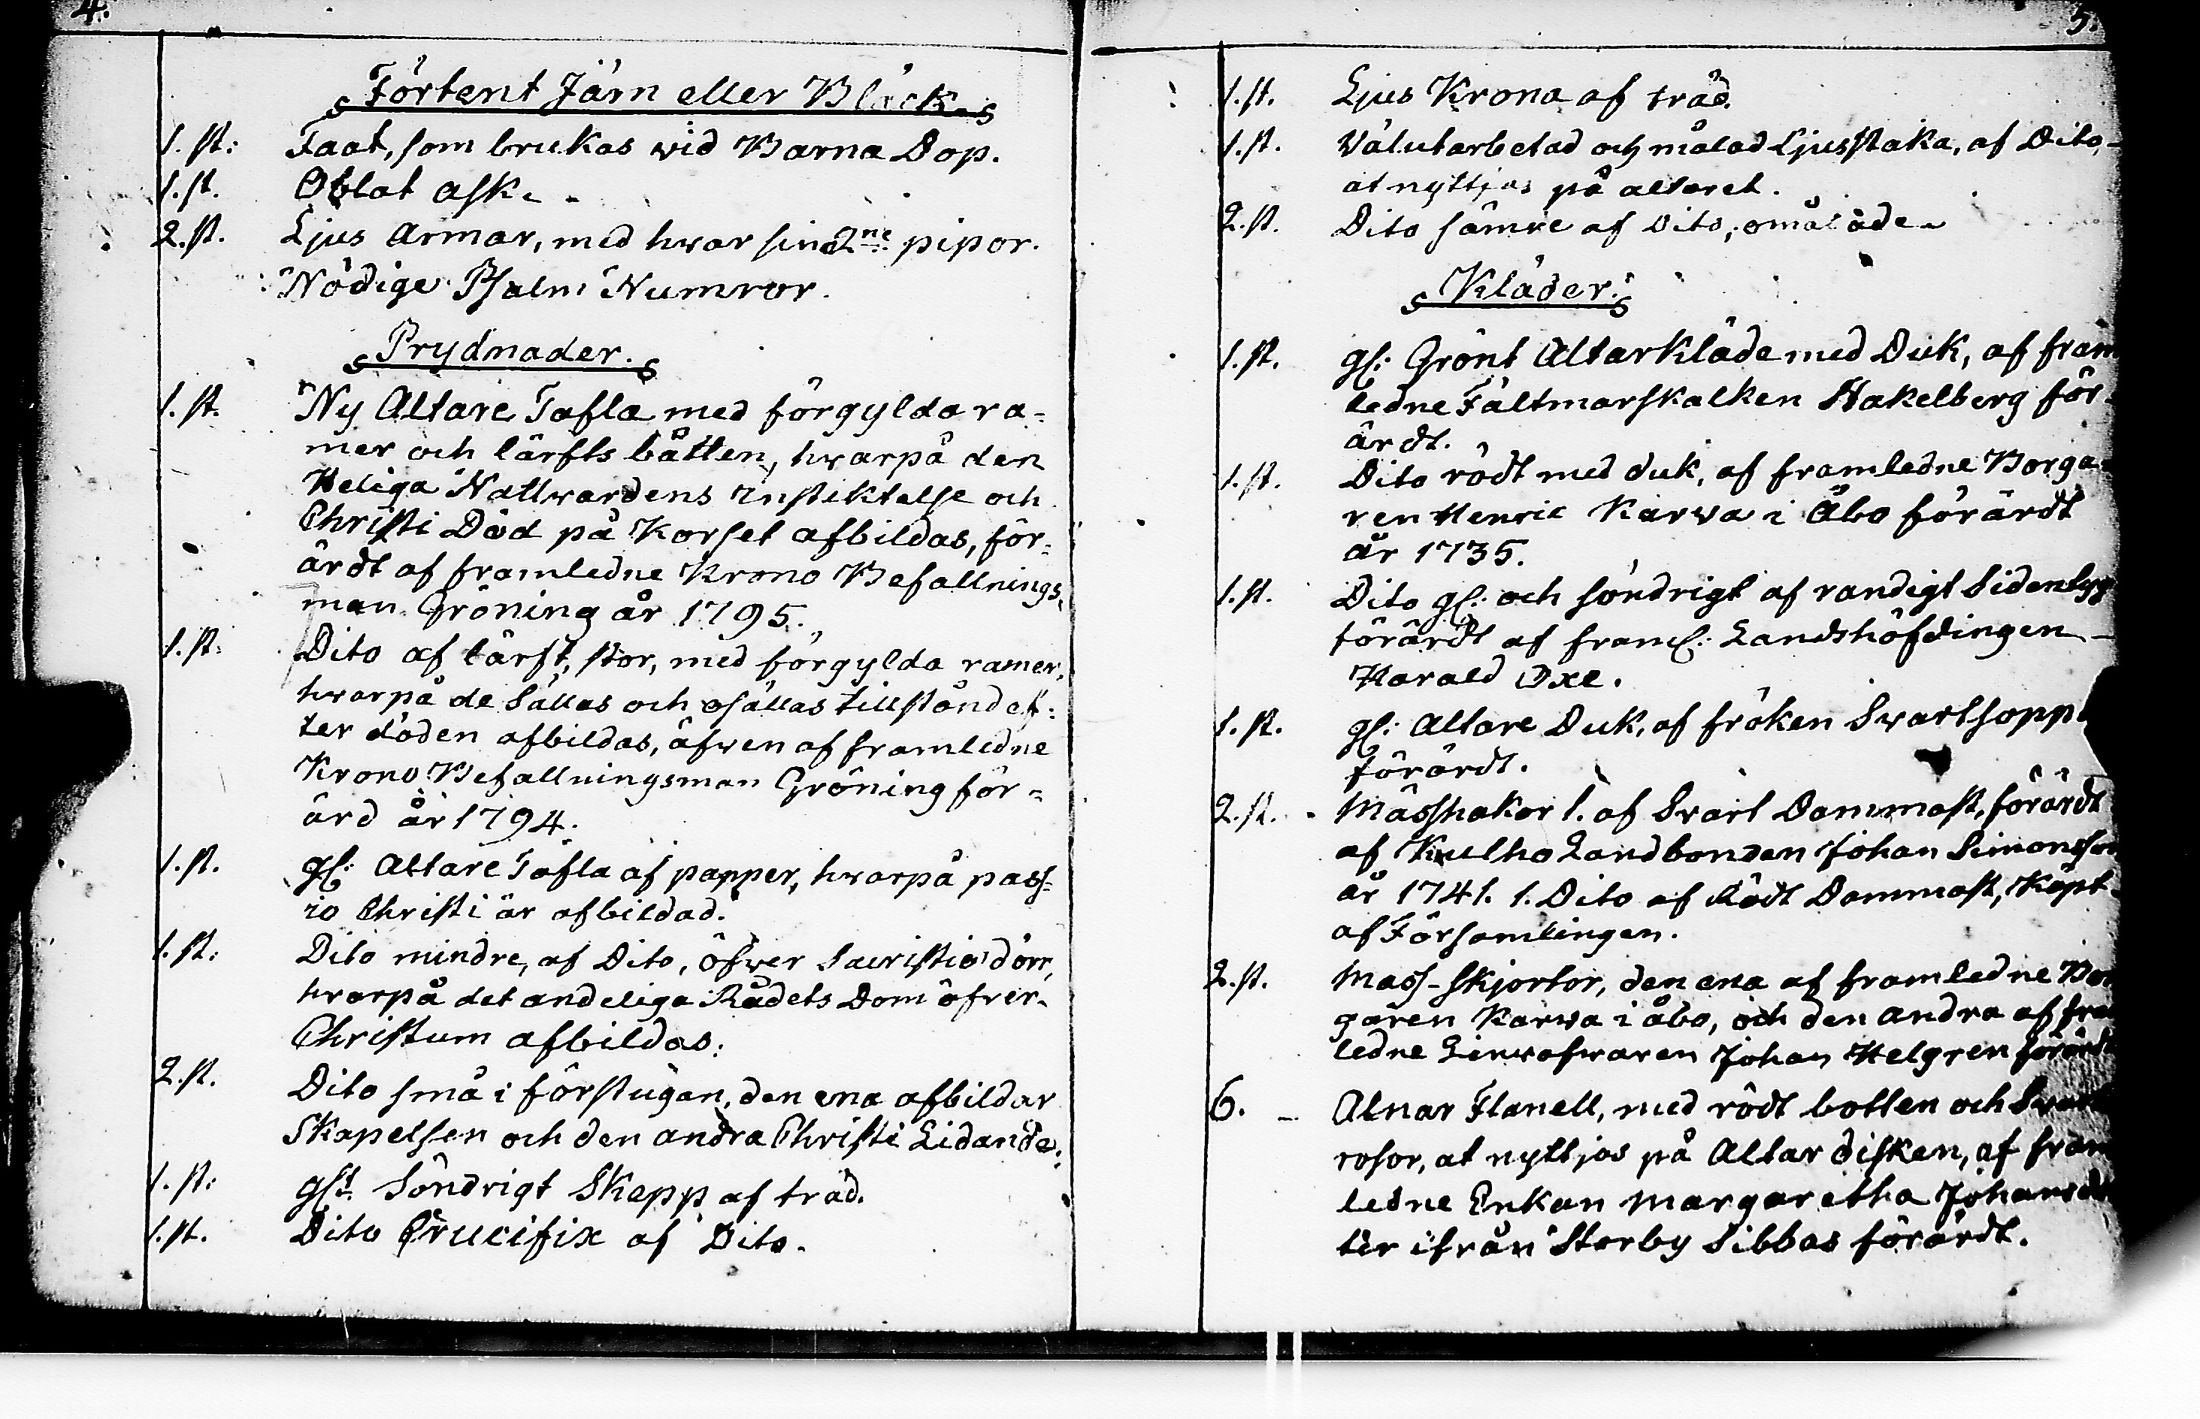 4.
Förtent Järn eller Bläck.
1. st: Faat, som brukas wid Barna Dop.
1. st. Oblat ask.
2. st. Ljus Armar, med hwar sina 2ne pipor.
Nödige Psalm Numror.
Prydnader.
1. st. Ny Altare Tafla med förgylda ra-
mer och lärfts båtten, hwarpå den
Heliga Nattwardens instiktelse och
Christi Död på Korset afbildas, för-
ärdt af framledne Krono Befallnings-
man Gröning år 1795.
1. st. Dito af lärft, stor, med förgylda ramer,
hwarpå de Sällas och osällas tillstånd ef-
ter döden afbildas, äfwen af framledne
Krono Befallningsman Gröning för-
ärd år 1794.
1. st. gl: Altare Tafla af papper, hwarpå pass-
io Christi är afbildad.
1. st: Dito mindre, af Dito, öfwer Sacristie dörr,
hvarpå det andeliga Rådets Dom öfver
Christum afbildas.
2. st. Dito små i förstugan, den ena afbildar
Skapelsen och den andra Christi Lidande.
1. st: glt Söndrigt Skepp af träd.
1. st. Dito Crucifix af Dito.
5.
1. st. Ljus Krona af träd.
1. st. Välutarbetad och målad Ljusstaka, af Dito,
at nyttjas på altaret.
2. st. Dito sämre af Dito, omålade.
Kläder.
1. st. gl: Grönt Altarkläde med Duk, af fram
ledne Fältmarskalken Stakelberg för-
ärdt.
1. st. Dito rödt med duk, af framledne Borga-
ren Henric Karva i Åbo förärdt
år 1735.
1. st. Dito gl: och söndrigt af randigt Sidentyg
förärdt af framl: Landshöfdingen
Harald Oxe.
1. st. gl: Altare Duk, af fröken Svartsopp
förärdt.
2. st. Mässhakar 1. af Svart Dammast, förärdt
af Kulho Landbonden Johan Simonsson
år 1741. 1. Dito af Rödt Dammast, Köpt
af Församlingen.
2. st. Mass-skjortor, den ena af framledne Bor
garen Karva i åbo, och den andra af fra
ledne Linwäfwaren Johan Helgren förärdt
6. - Alnar Flanell, med rödt botten och Svart
rosor, at nyttjas på Altar disken, af fram
ledne Enkan Margaretha Johansdt
ter ifrån Storby Sibbas förärdt.